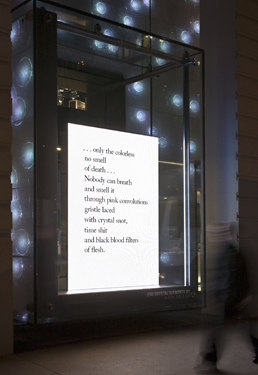 . . . only the colorless
no smell
of death . . .
Nobody can breath
and smell it
through pink convolutions
gristle laced
with crystal snot,
time shit
and black blood filters
of flesh.